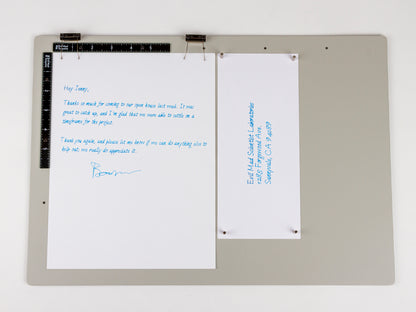 Hey Jenny,
Thanks so much for coming to our open house last week. It was
great to catch up, and I'm glad that we were able to settle on a
timeframe for the project.
Thank you again, and please let me know if we can do anything else to
help out; we really do appreciate it.
Evil Mad Scientist Laboratories
1285 Forgewood Ave.
Sunnyvale, CA 94089